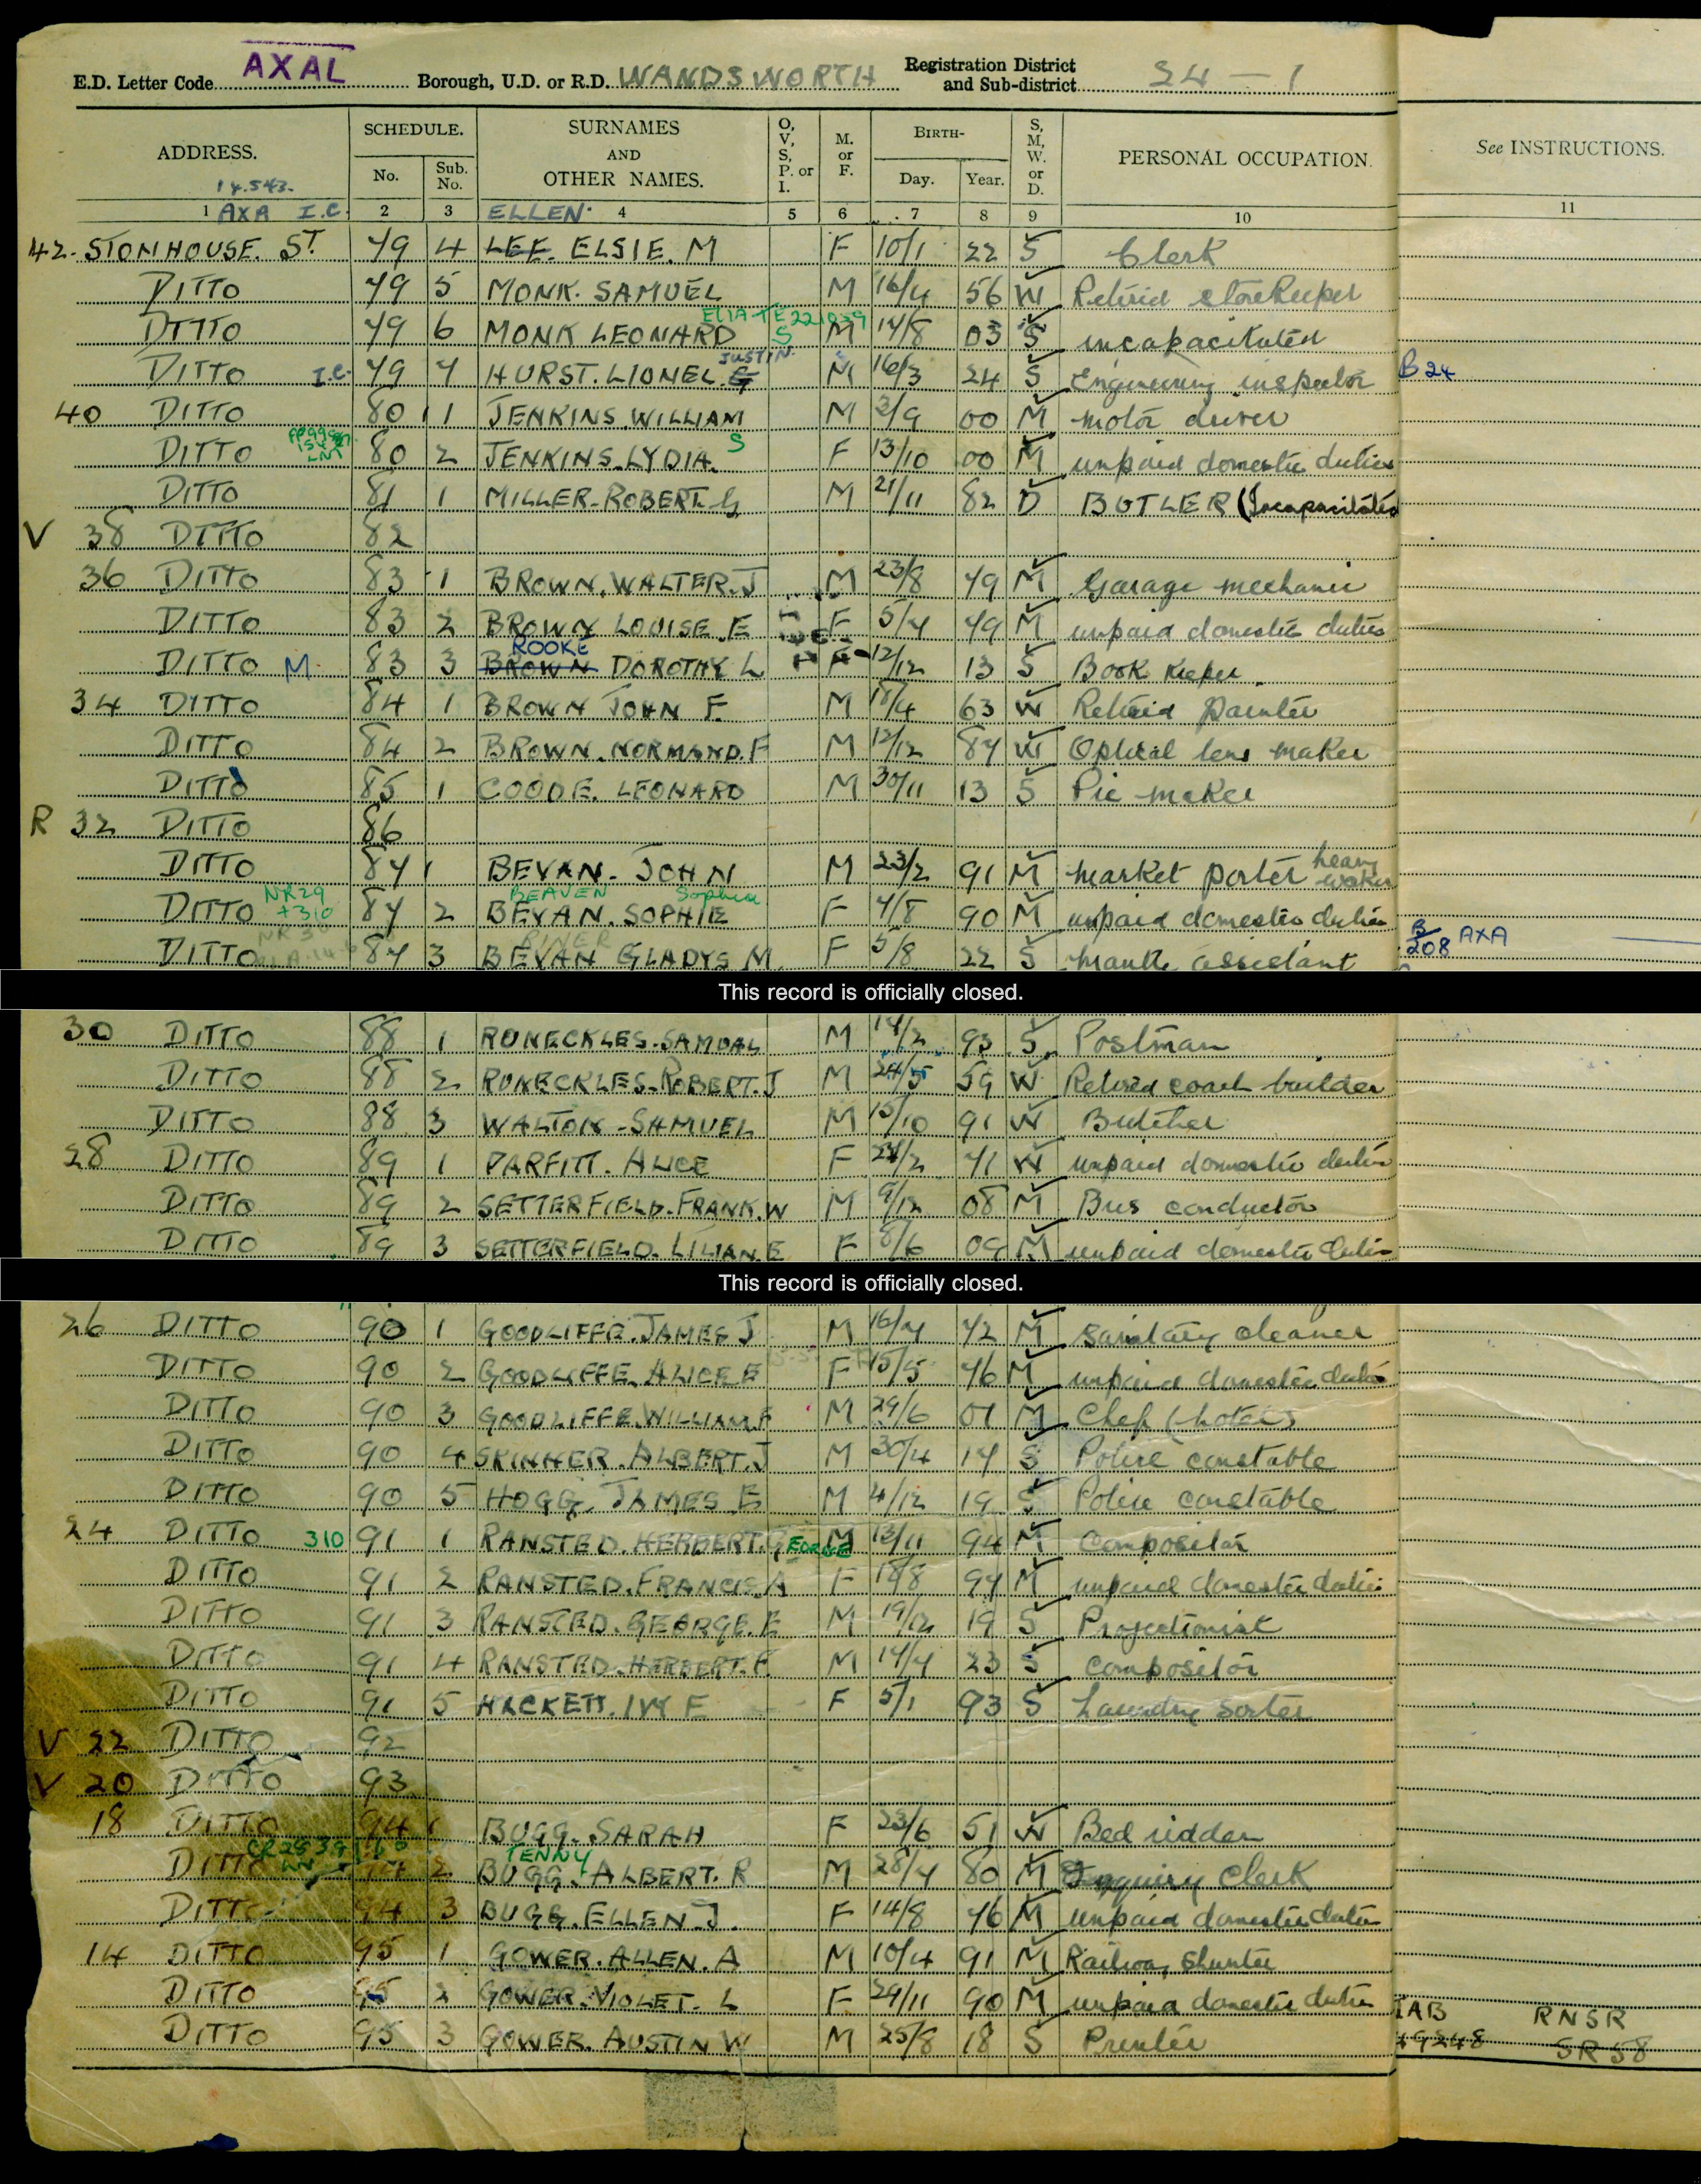 E.D. Letter Code AXAL Borough, U.D. or R.D. WANDSWORTH Registration District and Sub-district 24 — 1
ADDRESS. SCHEDULE. No. Sub. No. SURNAMES AND OTHER NAMES. O, V, S, P. or I. M. or F. BIRTH- Day. Year. S, M, W. or D. PERSONAL OCCUPATION. See INSTRUCTIONS.
14.543.
1 AXA I.C. 2 3 ELLEN 4 5 6 7 8 9 10 11
42. STONHOUSE. ST 79 4 LEE. ELSIE. M F 10/1 22 S Clerk
DITTO 79 5 MONK. SAMUEL M 16/4 56 W Retired storekeeper
DITTO 79 6 MONK LEONARD S M 14/8 03 S incapacitated
JUSTIN
DITTO I.C. 79 7 HURST. LIONEL. G M 16/3 24 S Engineering inspector B 24
40 DITTO 80 1 JENKINS. WILLIAM M 2/9 00 M motor driver
DITTO 80 2 JENKINS. LYDIA. S F 13/10 00 M unpaid domestic duties
DITTO 81 1 MILLER. ROBERT. G M 21/11 82 D BUTLER (Incapacitated
V 38 DITTO 82
36 DITTO 83 1 BROWN. WALTER. J M 23/8 79 M Garage mechanic
DITTO 83 2 BROWN LOUISE. E F 5/7 79 M unpaid domestic duties
ROOKE
DITTO M 83 3 BROWN DOROTHY L F 12/12 13 S Book keeper.
34 DITTO 84 1 BROWN JOHN F. M 18/4 63 W Retired painter
DITTO 84 2 BROWN. NORMAND. F M 12/12 87 W Optical lens maker
DITTO 85 1 COODE. LEONARD M 30/11 13 S Pie maker
R 32 DITTO 86
DITTO 87 1 BEVAN. JOHN M 23/2 91 M market porter heavy worker
NR29 BEAVEN Sophia
DITTO +310 87 2 BEVAN. SOPHIE F 7/8 90 M unpaid domestic duties
DITTO 87 3 BEVAN GLADYS M. F 5/8 22 S mantle assistant B/208 AXA
This record is officially closed.
30 DITTO 88 1 RUNECKLES. SAMUAL M 14/2 93 S Postman
DITTO 88 2 RUNECKLES. ROBERT. J M 24/5 59 W Retired coach builder
DITTO 88 3 WALTON. SAMUEL M 15/10 91 W Butcher
28 DITTO 89 1 PARFITT. ALICE F 24/2 71 W unpaid domestic duties
DITTO 89 2 SETTERFIELD. FRANK. W M 9/12 08 M Bus conductor
DITTO 89 3 SETTERFIELD. LILIAN. E F 8/6 09 M unpaid domestic duties
This record is officially closed.
26 DITTO 90 1 GOODLIFFE. JAMES J M 16/7 72 M Sanitary cleaner
DITTO 90 2 GOODLIFFE. ALICE E F 15/5 76 M unpaid domestic duties
DITTO 90 3 GOODLIFFE. WILLIAM. F M 29/6 07 M Chef (hotel)
DITTO 90 4 SKINNER. ALBERT. J M 30/4 17 S Police constable
DITTO 90 5 HOGG. JAMES E M 4/12 19 S Police constable
24 DITTO 310 91 1 RANSTED. HERBERT. GEORGE M 13/11 94 M Compositor
DITTO 91 2 RANSTED. FRANCIS. A F 18/8 97 M unpaid domestic duties
DITTO 91 3 RANSTED. GEORGE. E M 19/12 19 S Projectionist
DITTO 91 4 RANSTED. HERBERT. F. M 14/7 23 S compositor
DITTO 91 5 HACKETT. IVY E F 5/1 93 S Laundry sorter
V 22 DITTO 92
V 20 DITTO 93
18 DITTO 94 1 BUGG. SARAH F 23/6 51 W Bed ridden
TENNY
DITTO 94 2 BUGG. ALBERT. R M 28/7 80 M Enquiry Clerk
DITTO 94 3 BUGG. ELLEN. J. F 14/8 76 M unpaid domestic duties
14 DITTO 95 1 GOWER. ALLEN. A M 10/4 91 M Railway Shunter
DITTO 95 2 GOWER. VIOLET. L F 29/11 90 M unpaid domestic duties
DITTO 95 3 GOWER. AUSTIN W M 25/8 18 S Printer
IAB RNSR
49248 SR 58